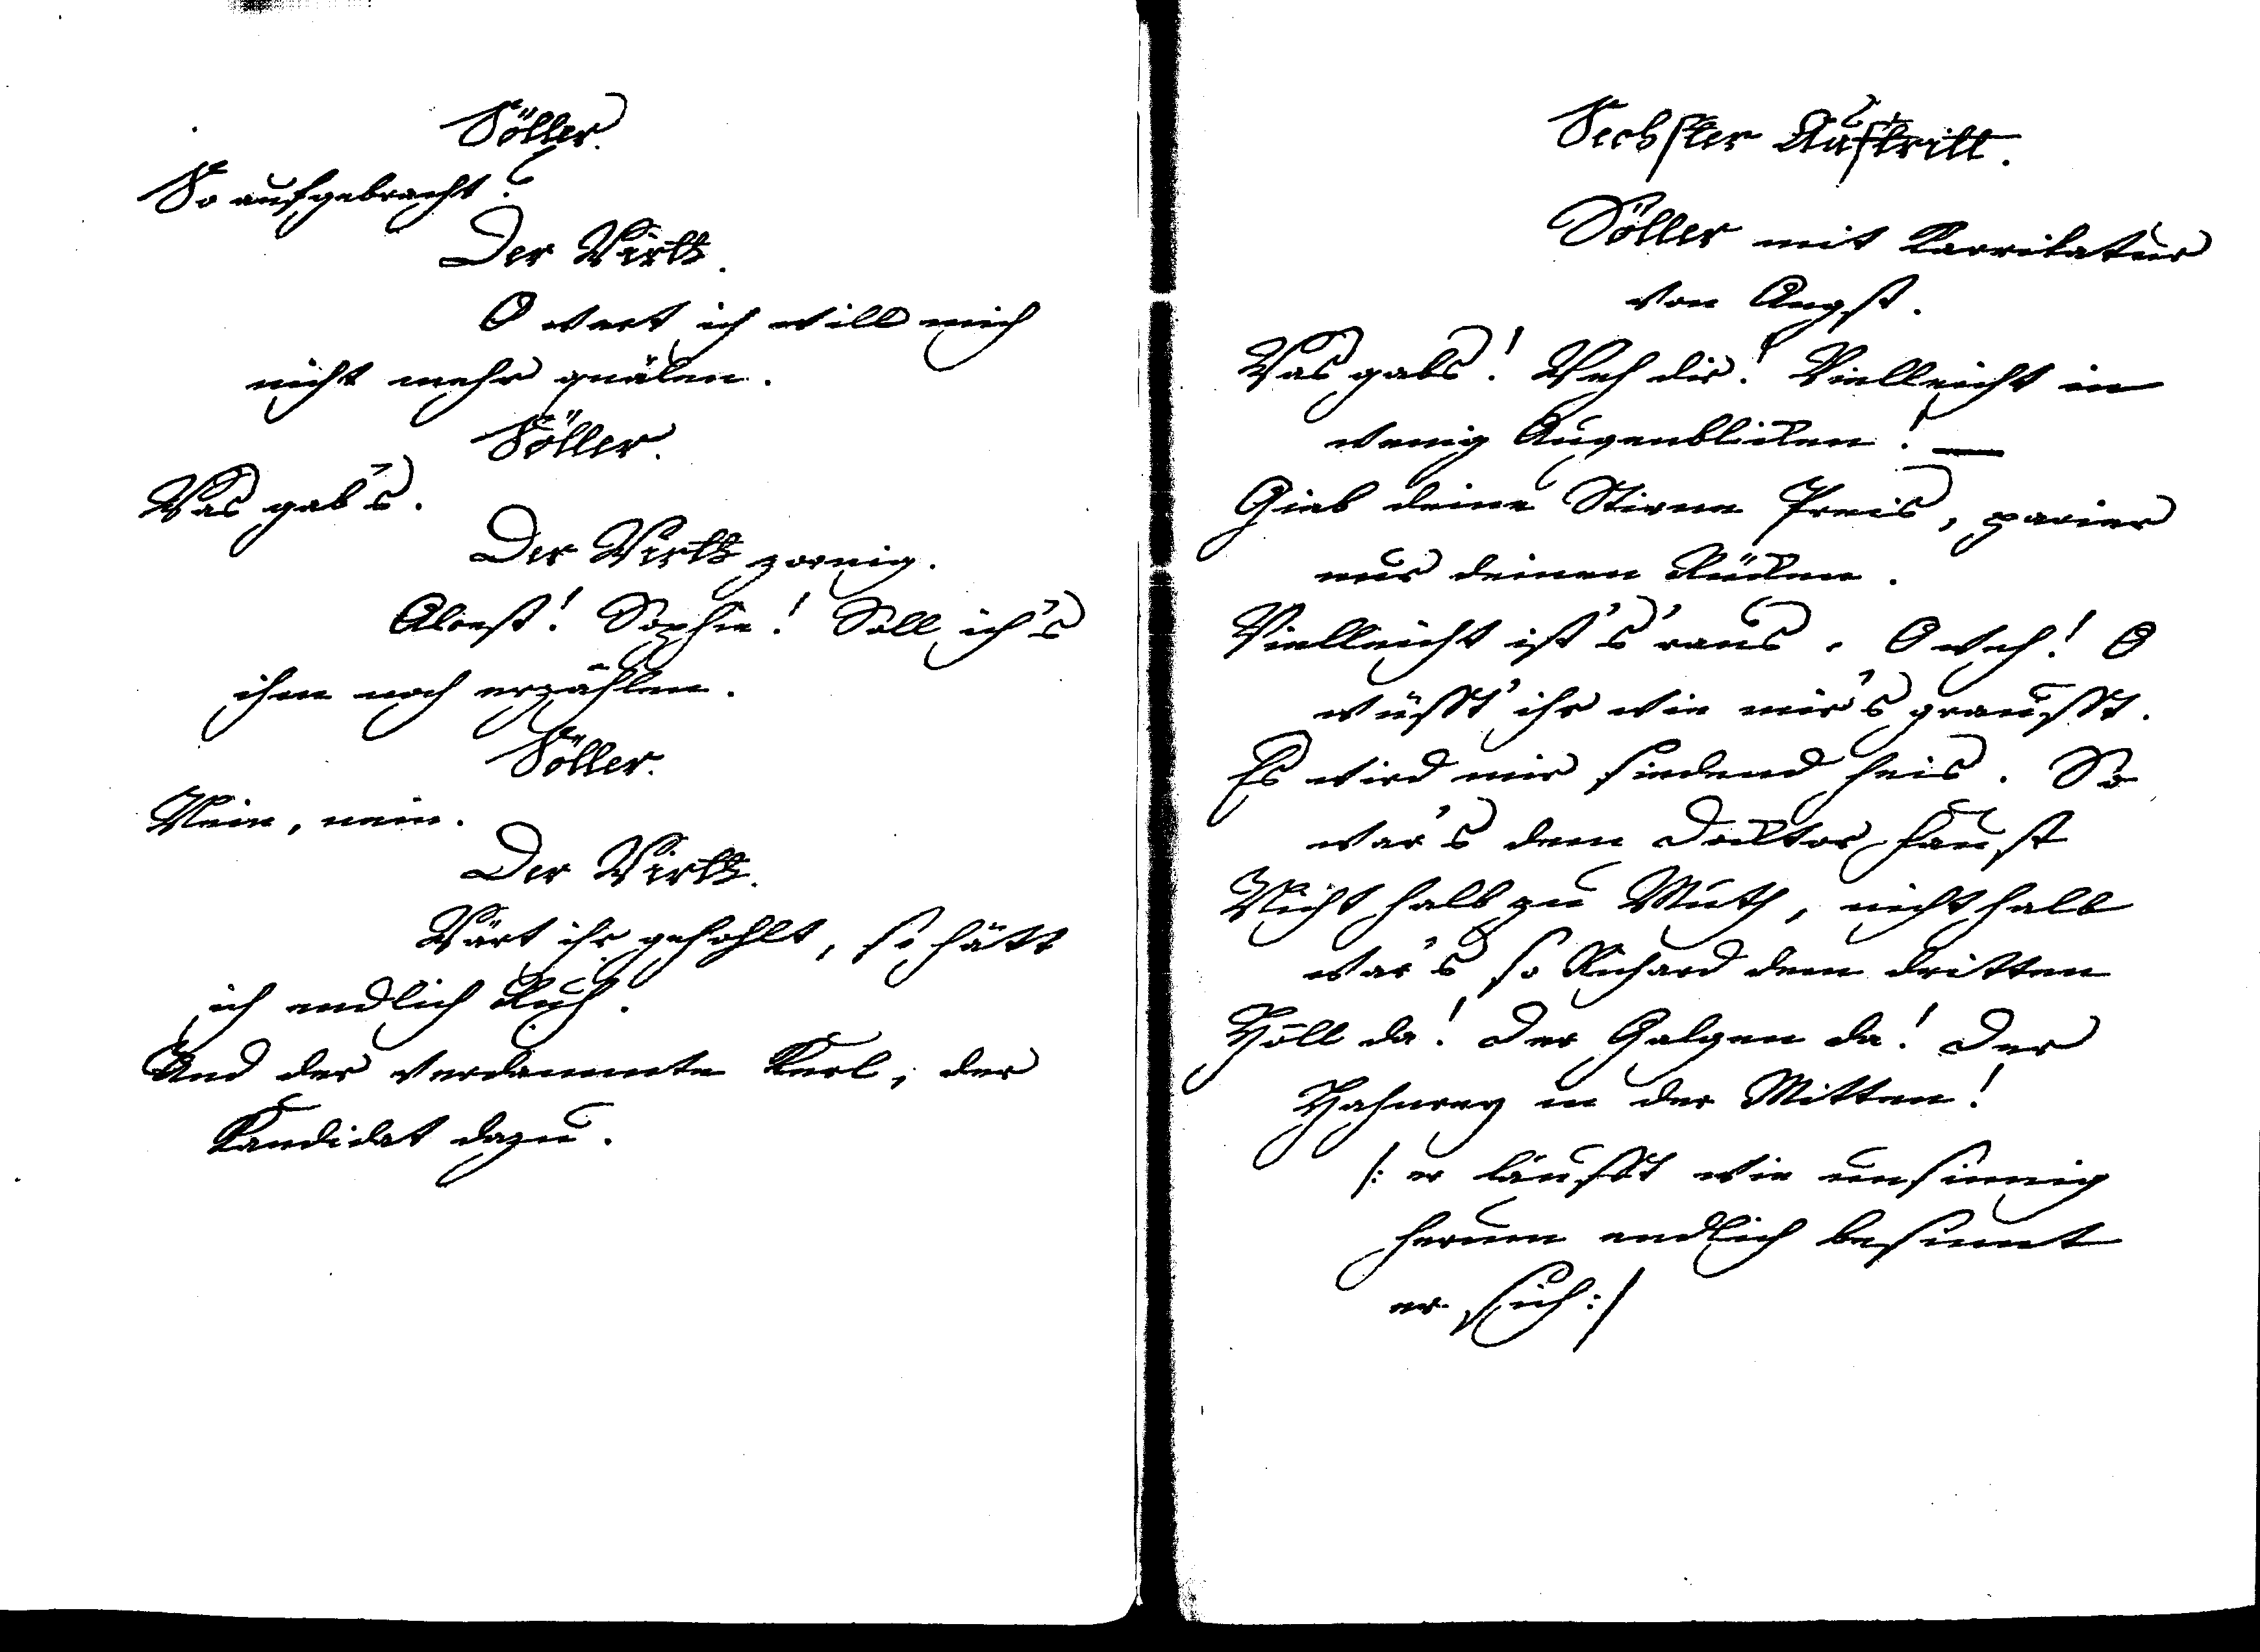 Söller.
So aufgebracht?
Der Wirth.
O wart ich will mich
nicht mehr quälen.
Söller.
Was gab's.
Der Wirth zornig.
Alcest! Sophie! Soll ich's
ihm noch erzählen.
Söller.
Nein, nein.
Der Wirth.
Wärt ihr gehohlt, so hätt
ich endlich Ruh.
Und der verdammte Kerl, der
Kandidat dazu.
Sechster Auftritt.
Söller mit Karrikatur
von Angst.
Was gabs! Weh dir! Vielleicht in
wenig Augenblicken! —
Gieb deine Stirne Preis, parier
nur deinen Rücken.
Vielleicht ist's 'raus. O weh! O
wüsst' ihr wie mir's grausst.
Es wird mir siedend heis. So
war's dem Docktor Faust
Nicht halb zu Muth, nicht halb
war's so Richard dem dritten
Höll da! Der Galgen da! Der
Hahnrey in der Mitten!
/: er läufft wie unsinnig
herum endlich besinnt
er sich :/